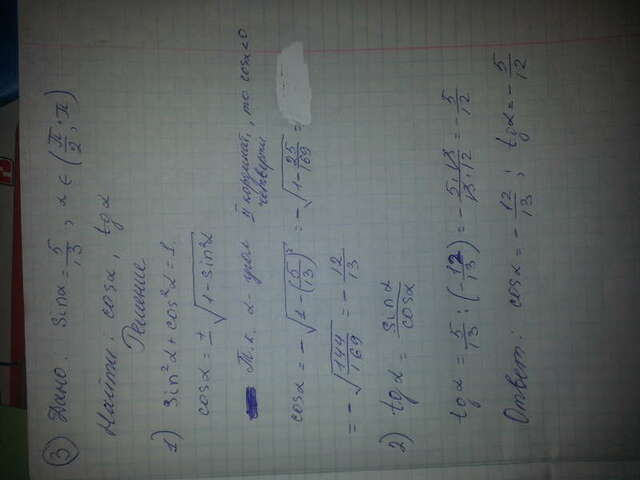 ③ Дано: sinα = 5/13, α ∈ (π/2; π)
Найти: cosα, tgα
Решение
1) sin²α + cos²α = 1
cosα = ± √(1 - sin²α)
Т.к. α - угол II координат. четверти, то cosα < 0
cosα = - √(1 - (5/13)²) = - √(1 - 25/169) =
= - √(144/169) = - 12/13
2) tgα = sinα/cosα
tgα = 5/13 : (- 12/13) = - 5·13/13·12 = - 5/12
Ответ: cosα = - 12/13; tgα = - 5/12